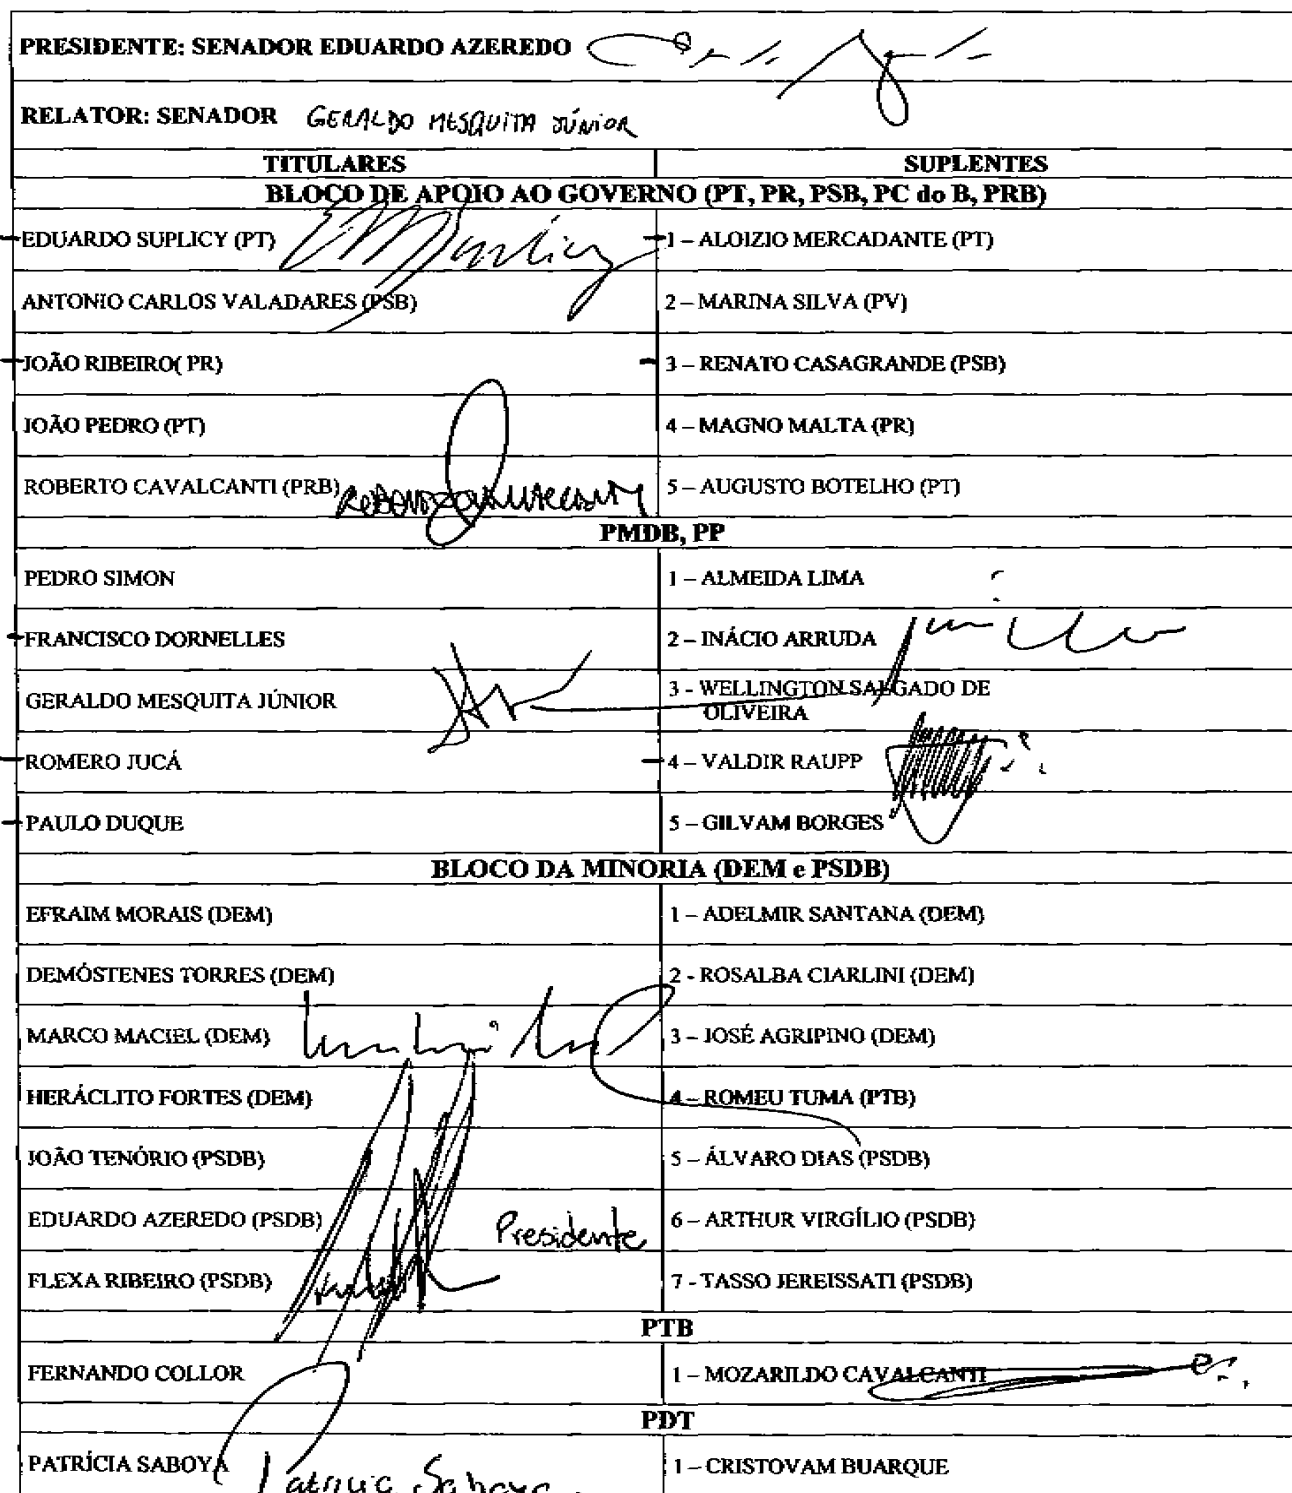 PRESIDENTE: SENADOR EDUARDO AZEREDO
RELATOR: SENADOR GERALDO MESQUITA JÚNIOR
TITULARES SUPLENTES
BLOCO DE APOIO AO GOVERNO (PT, PR, PSB, PC do B, PRB)
EDUARDO SUPLICY (PT) 1 – ALOIZIO MERCADANTE (PT)
ANTONIO CARLOS VALADARES (PSB) 2 – MARINA SILVA (PV)
JOÃO RIBEIRO( PR) 3 – RENATO CASAGRANDE (PSB)
JOÃO PEDRO (PT) 4 – MAGNO MALTA (PR)
ROBERTO CAVALCANTI (PRB) 5 – AUGUSTO BOTELHO (PT)
PMDB, PP
PEDRO SIMON 1 – ALMEIDA LIMA
FRANCISCO DORNELLES 2 – INÁCIO ARRUDA
GERALDO MESQUITA JÚNIOR 3 - WELLINGTON SALGADO DE
OLIVEIRA
ROMERO JUCÁ 4 – VALDIR RAUPP
PAULO DUQUE 5 – GILVAM BORGES
BLOCO DA MINORIA (DEM e PSDB)
EFRAIM MORAIS (DEM) 1 – ADELMIR SANTANA (DEM)
DEMÓSTENES TORRES (DEM) 2 - ROSALBA CIARLINI (DEM)
MARCO MACIEL (DEM) 3 – JOSÉ AGRIPINO (DEM)
HERÁCLITO FORTES (DEM) 4 – ROMEU TUMA (PTB)
JOÃO TENÓRIO (PSDB) 5 – ÁLVARO DIAS (PSDB)
EDUARDO AZEREDO (PSDB) Presidente 6 – ARTHUR VIRGÍLIO (PSDB)
FLEXA RIBEIRO (PSDB) 7 - TASSO JEREISSATI (PSDB)
PTB
FERNANDO COLLOR 1 – MOZARILDO CAVALCANTI
PDT
PATRÍCIA SABOYA Patricia Saboya 1 – CRISTOVAM BUARQUE